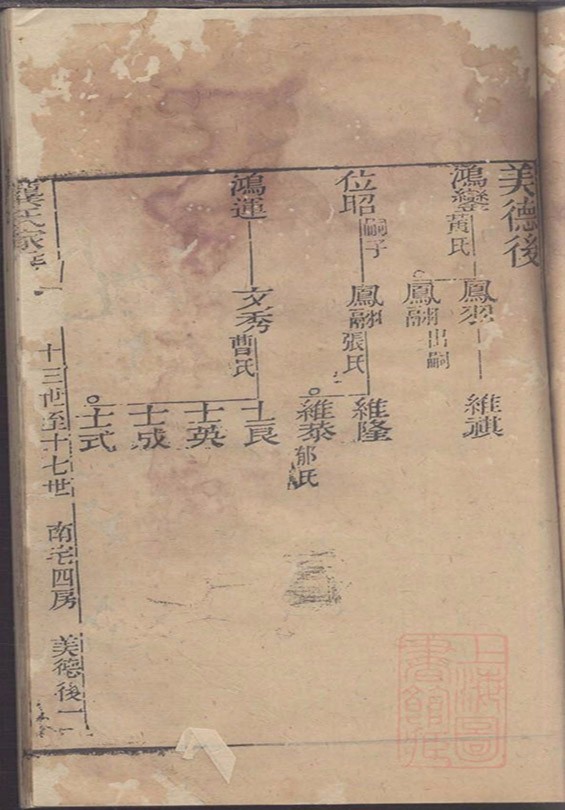 美德後
鴻鑾 黃氏
鳳翌
維祺
鳳翮 出嗣
位昭 嗣子
鳳翮 張氏
維隆
維泰 郁氏
鴻運
文秀 曹氏
士良
士英
士成
士式
氏家
十三世至十七世 南宅四房 美德後一
上海圖書館